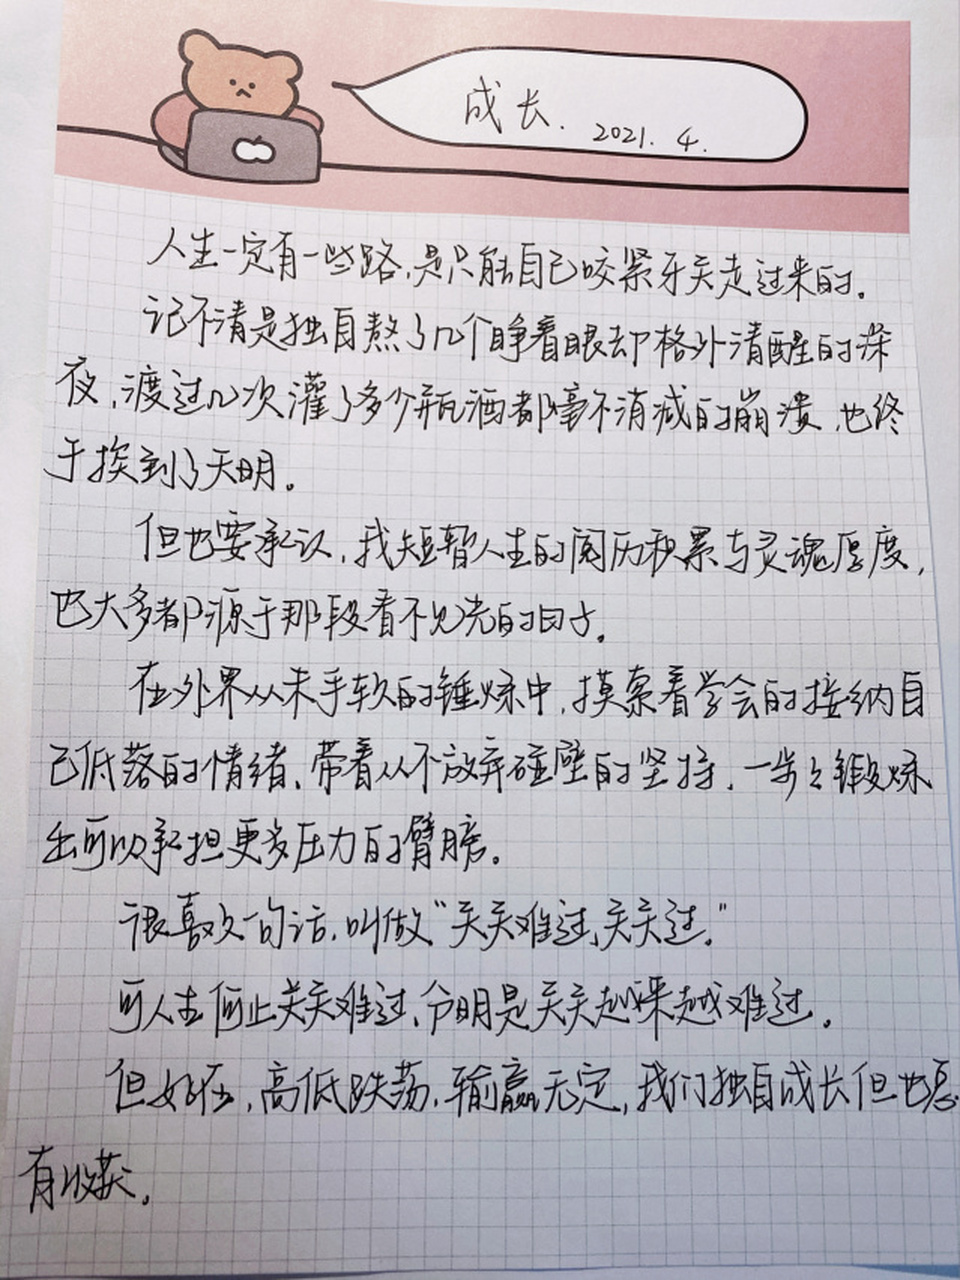 成长. 2021. 4.
人生一定有一些路,是只能自己咬紧牙关走过来的。
记不清是独自熬了几个睁着眼却格外清醒的深
夜,渡过几次灌了多少瓶酒都毫不消减的崩溃,也终
于挨到了天明。
但也要承认,我短暂人生的阅历积累与灵魂厚度,
也大多都源于那段看不见光的日子。
在外界从未手软的锤炼中,摸索着学会的接纳自
己低落的情绪、带着从不放弃碰壁的坚持,一步々锻炼
出可以承担更多压力的臂膀。
很喜欢一句话,叫做“关关难过,关关过。”
可人生何止关关难过,分明是关关越来越难过。
但好在,高低跌荡,输赢无定,我们独自成长但也总
有收获。